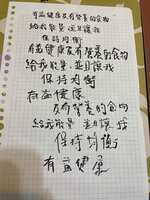 有益健康及有營養的食物
給我能量 並且讓我
保持均衡
有益健康及有營養的食物
給我能量,並且讓我
保持均衡
有益健康
及有營養的食物
給我能量 並且讓我
保持均衡
有益健康